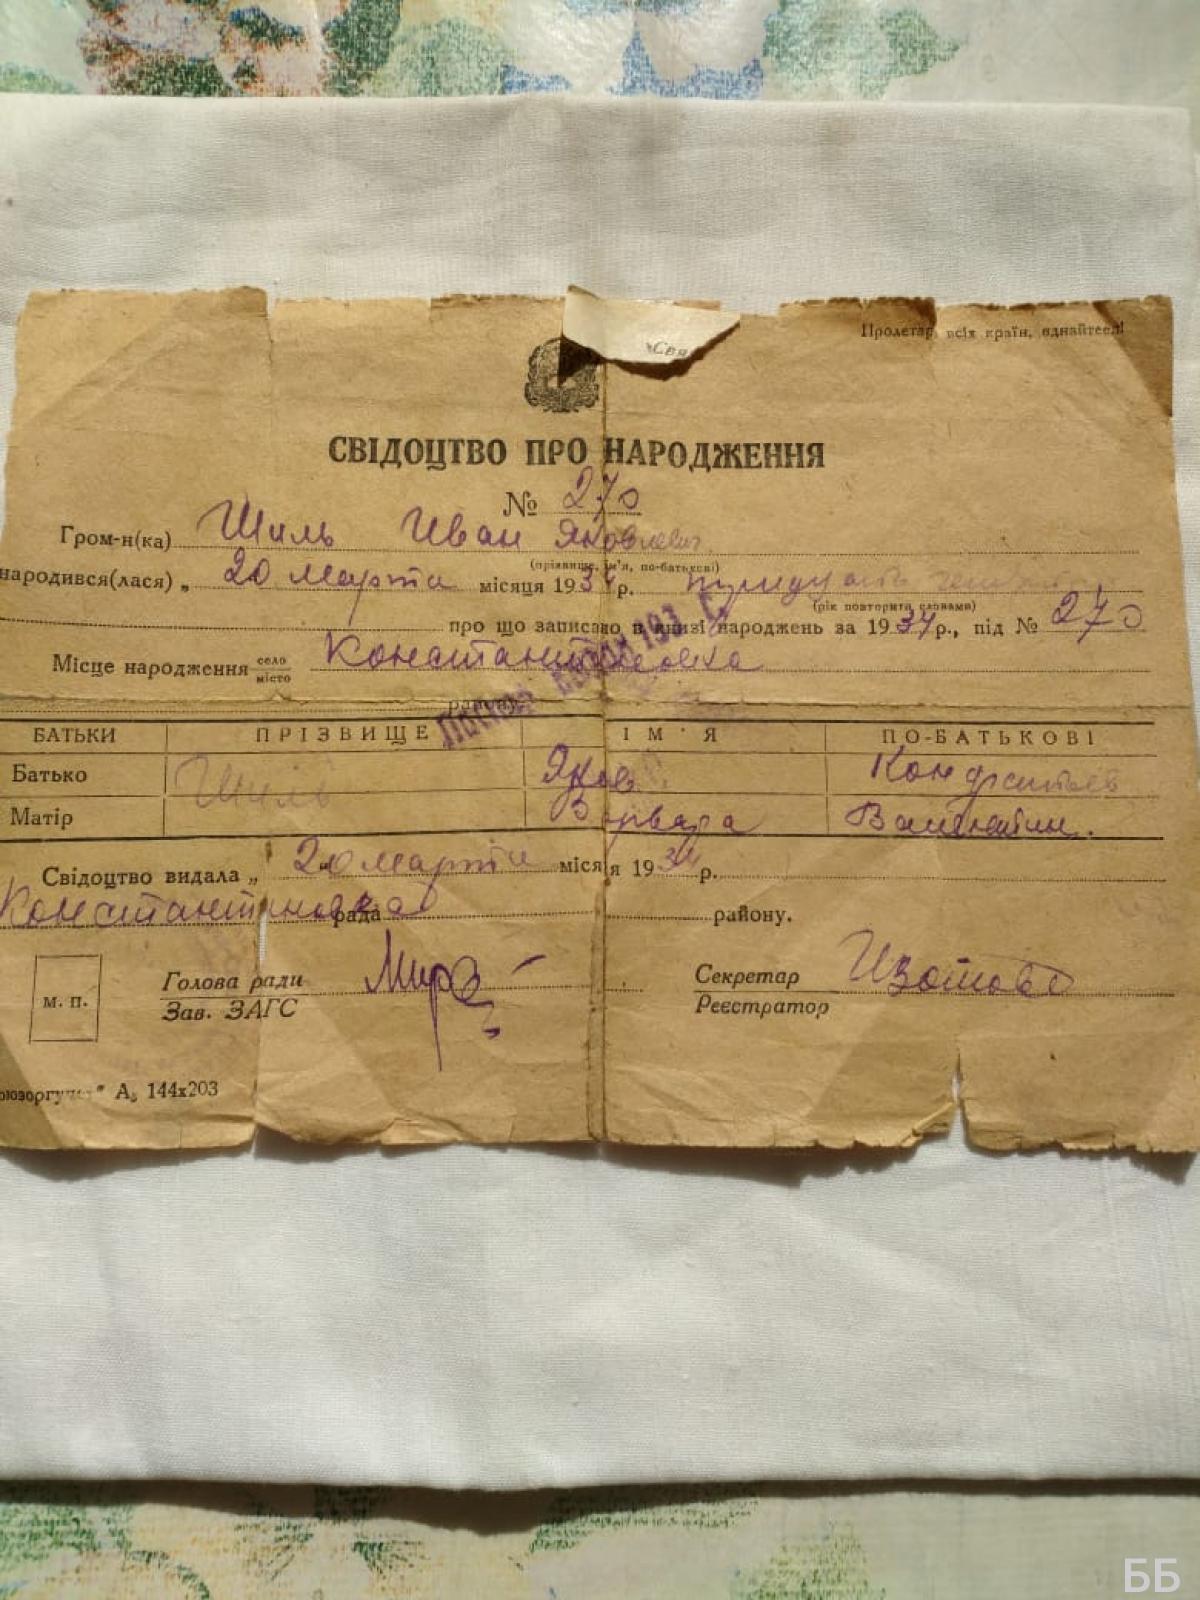 Пролетар. всіх країн, єднайтеся!
Свя
СВІДОЦТВО ПРО НАРОДЖЕННЯ
№ 270
Гром-н(ка) Шиль Иван Яковлевич
(прізвище, ім'я, по-батькові)
народився(лася) „ 20 марта місяця 1934 р.
(рік повторити словами)
про що записано в книзі народжень за 1934 р., під № 270
Місце народження село місто Константиновка
району
БАТЬКИ ПРІЗВИЩЕ ІМ'Я ПО-БАТЬКОВІ
Батько Шиль Яков Кондратьев
Матір Варвара Валентин.
Свідоцтво видала „ 20 марта місяця 1934 р.
Константиновка рада району.
м. п. Голова ради Секретар Изотова
Зав. ЗАГС Реєстратор
А₅ 144х203
ББ